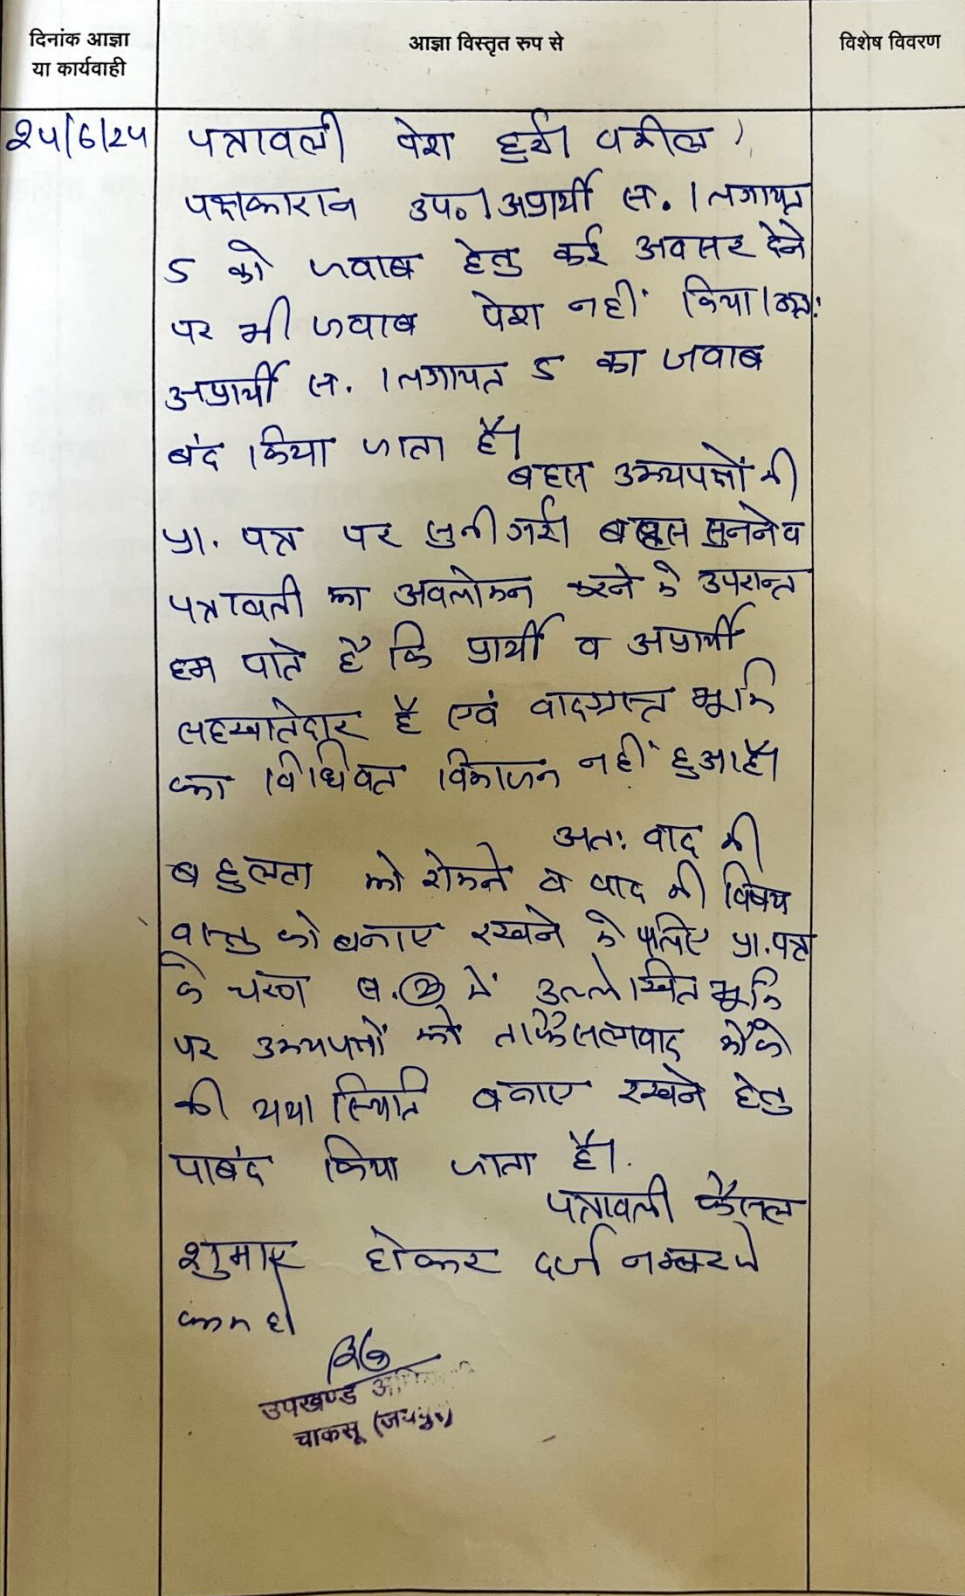 दिनांक आज्ञा
या कार्यवाही
आज्ञा विस्तृत रुप से
विशेष विवरण
24/6/24
पत्रावली पेश हुई। वकील
पक्षकारान उप०। अप्रार्थी स. 1 लगायत
5 को जवाब हेतु कई अवसर देने
पर भी जवाब पेश नहीं किया। अतः
अप्रार्थी स. 1 लगायत 5 का जवाब
बंद किया जाता है।
बहस उभयपक्षों की
प्रा. पत्र पर सुनी गई। बहस सुनने व
पत्रावली का अवलोकन करने के उपरान्त
हम पाते है कि प्रार्थी व अप्रार्थी
सहखातेदार है एवं वादग्रस्त भूमि
का विधिवत विभाजन नहीं हुआ है।
अतः वाद की
बहुलता को रोकने व वाद की विषय
वस्तु को बनाए रखने के लिए प्रा. पत्र
के चरण स. में उल्लेखित भूमि
पर उभयपक्षों को ताफैसलावाद मौके
की यथा स्थिति बनाए रखने हेतु
पाबंद किया जाता है।
पत्रावली फैसल
शुमार होकर दर्ज नम्बर से
कम हो
उपखण्ड
चाकसू (जयपुर)